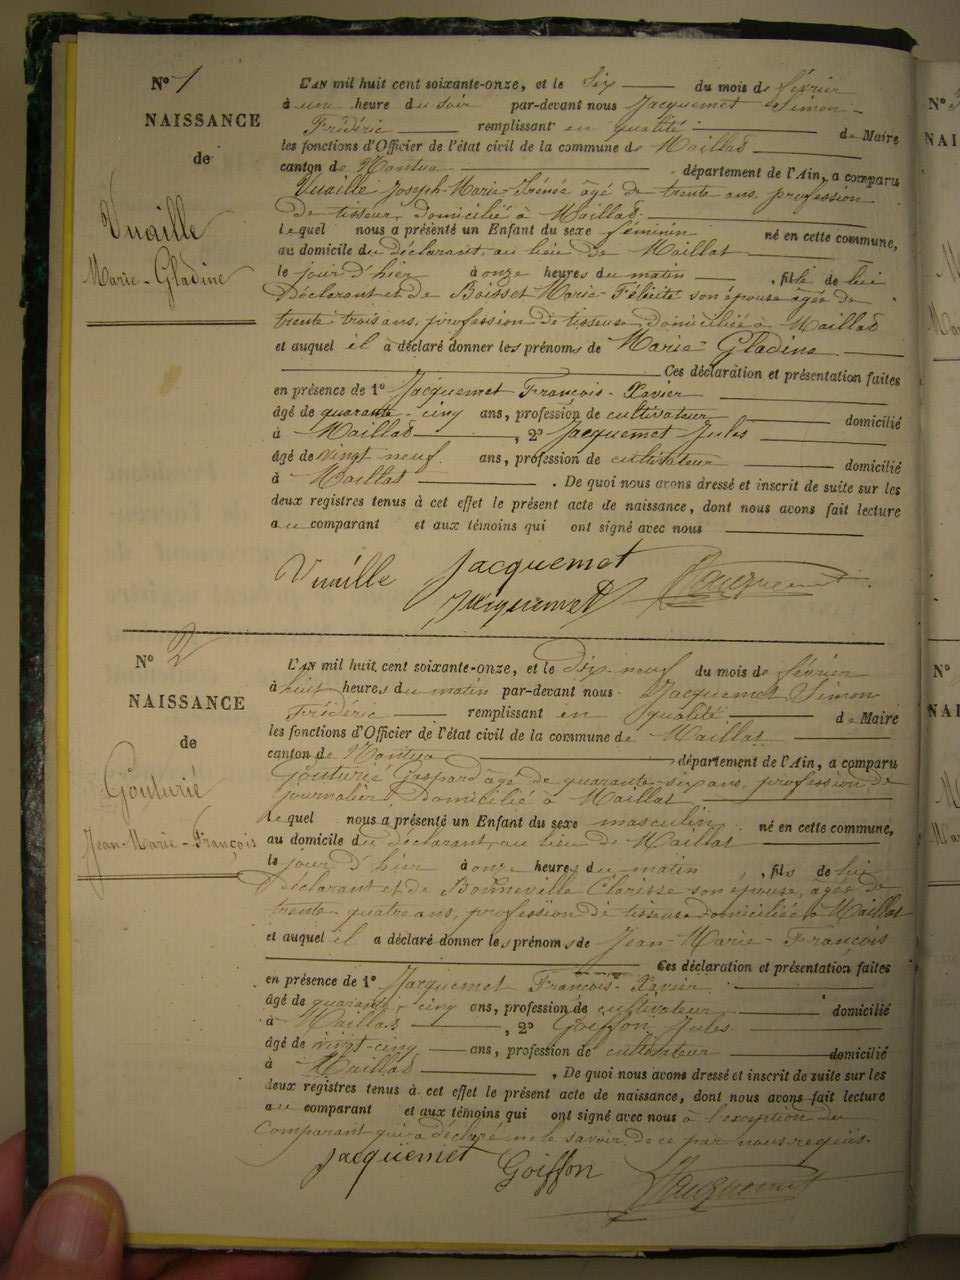 N° 1
NAISSANCE
de
Vuaille
Marie-Gladine
L'AN mil huit cent soixante-onze, et le Six du mois de février
à une heure du soir par-devant nous Jacquemet Simon
Frédéric remplissant en qualité de Maire
les fonctions d'Officier de l'état civil de la commune de Maillat
canton de Nantua département de l'Ain, a comparu
Vuaille Joseph-Marie-Irénée âgé de trente ans, profession
de tisseur, domicilié à Maillat
lequel nous a présenté un Enfant du sexe féminin né en cette commune,
au domicile du déclarant, au lieu de Maillat
le jour d'hier à onze heures du matin, fille de lui
Déclarant et de Boisset Marie-Félicité son épouse âgée de
trente trois ans, profession de tisseuse domiciliée à Maillat
et auquel il a déclaré donner les prénoms de Marie-Gladine
Ces déclaration et présentation faites
en présence de 1° Jacquemet François-Xavier
âgé de quarante-cinq ans, profession de cultivateur domicilié
à Maillat, 2° Jacquemet Jules
âgé de vingt neuf ans, profession de cultivateur domicilié
à Maillat. De quoi nous avons dressé et inscrit de suite sur les
deux registres tenus à cet effet le présent acte de naissance, dont nous avons fait lecture
au comparant et aux témoins qui ont signé avec nous
Vuaille Jacquemet Jacquemet
Jacquemet
N° 2
NAISSANCE
de
Gouturié
Jean-Marie-François
L'AN mil huit cent soixante-onze, et le Dix-neuf du mois de février
à huit heures du matin par-devant nous Jacquemet Simon
Frédéric remplissant en qualité de Maire
les fonctions d'Officier de l'état civil de la commune de Maillat
canton de Nantua département de l'Ain, a comparu
Gouturié Gaspard âgé de quarante-six ans, profession de
journalier, domicilié à Maillat
lequel nous a présenté un Enfant du sexe masculin né en cette commune,
au domicile du déclarant, au lieu de Maillat
le jour d'hier à onze heures du matin, fils de lui
Déclarant et de Bonneville Clarisse son épouse, âgée de
trente-quatre ans, profession de tisseuse domiciliée à Maillat
et auquel il a déclaré donner les prénoms de Jean-Marie-François
Ces déclaration et présentation faites
en présence de 1° Jacquemet François-Xavier
âgé de quarante-cinq ans, profession de cultivateur domicilié
à Maillat, 2° Goiffon Jules
âgé de vingt-cinq ans, profession de cultivateur domicilié
à Maillat. De quoi nous avons dressé et inscrit de suite sur les
deux registres tenus à cet effet le présent acte de naissance, dont nous avons fait lecture
au comparant et aux témoins qui ont signé avec nous à l'exception du
Comparant qui a déclaré ne le savoir, de ce par nous requis.
Jacquemet Goiffon Jacquemet